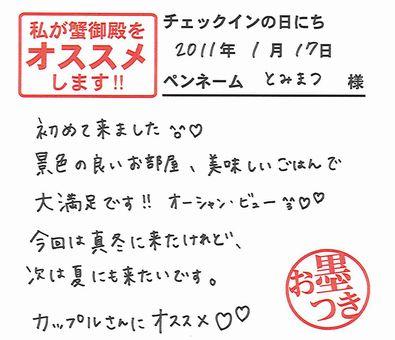 私が蟹御殿を
オススメ
します!!
チェックインの日にち
2011年 1月 17日
ペンネーム とみまつ 様
初めて来ました♡
景色の良いお部屋、美味しいごはんで
大満足です!! オーシャン・ビュー♡♡
今回は真冬に来たけれど、
次は夏にも来たいです。
カップルさんにオススメ♡♡
お墨つき